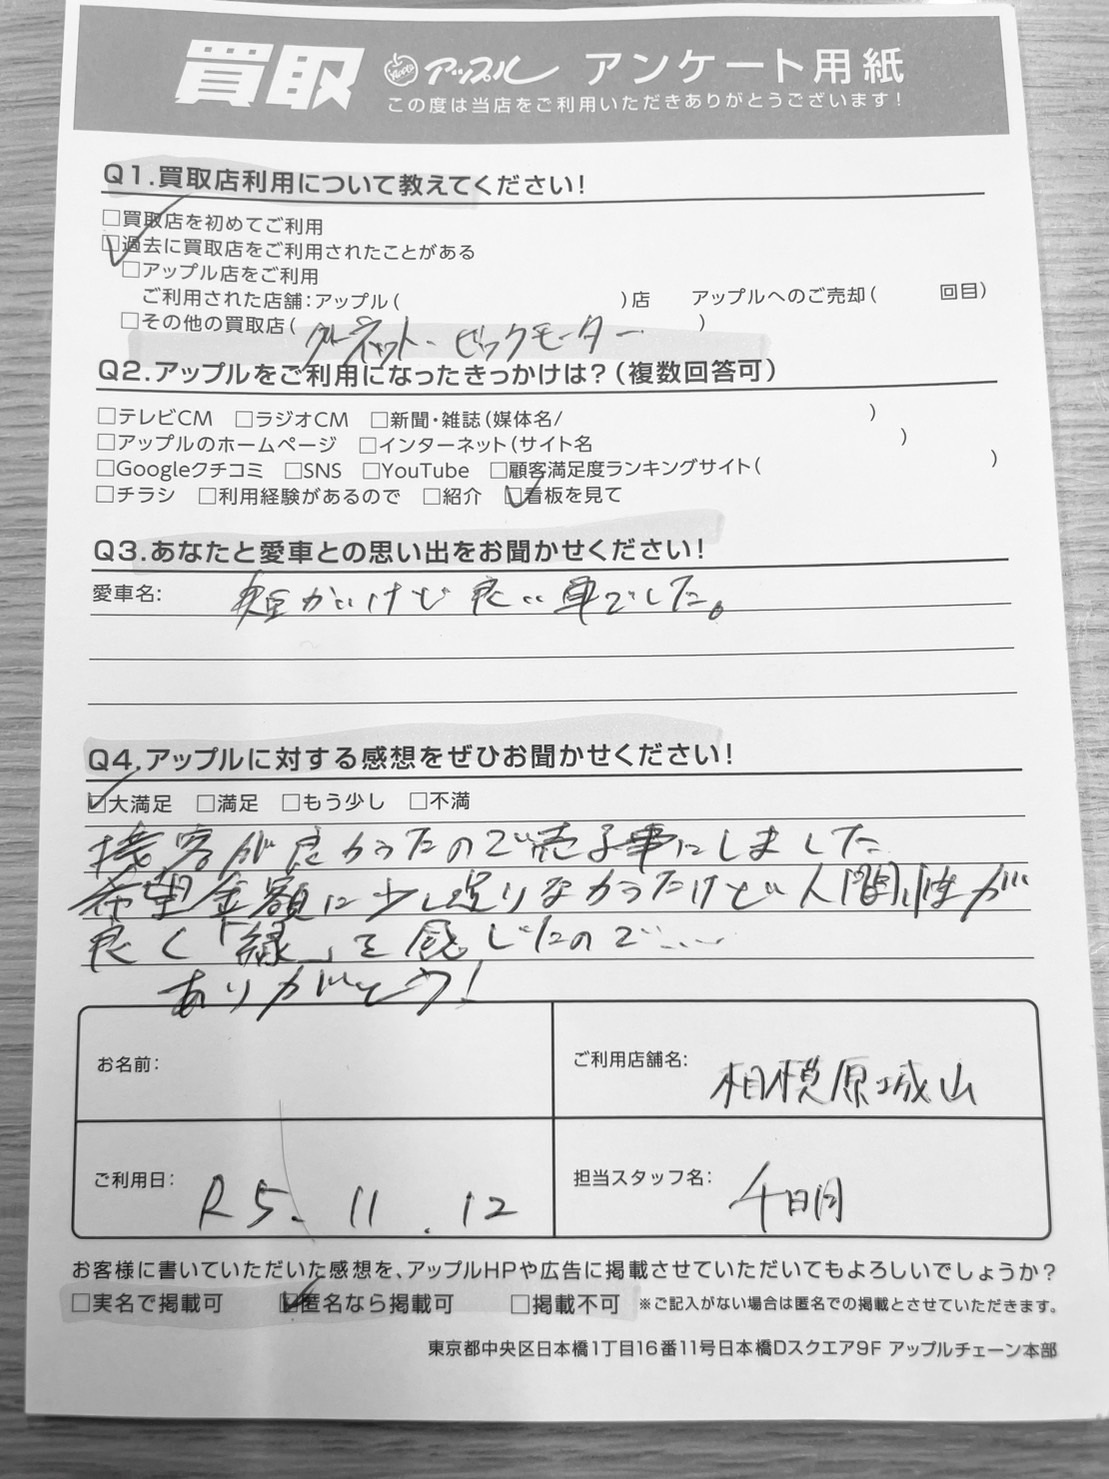 買取 アップル アンケート用紙
この度は当店をご利用いただきありがとうございます!
Q1.買取店利用について教えてください!
□買取店を初めてご利用
□過去に買取店をご利用されたことがある
□アップル店をご利用
ご利用された店舗:アップル( )店 アップルへのご売却( 回目)
□その他の買取店( ネット ビックモーター )
Q2.アップルをご利用になったきっかけは?(複数回答可)
□テレビCM □ラジオCM □新聞・雑誌(媒体名/ )
□アップルのホームページ □インターネット(サイト名 )
□Googleクチコミ □SNS □YouTube □顧客満足度ランキングサイト( )
□チラシ □利用経験があるので □紹介 □看板を見て
Q3.あなたと愛車との思い出をお聞かせください!
愛車名: 短かいけど良い車でした。
Q4.アップルに対する感想をぜひお聞かせください!
□大満足 □満足 □もう少し □不満
接客が良かったので売る事にしました
希望金額に少し足りなかったけど人間性が
良く「縁」を感じたので……
ありがとう!
お名前:
ご利用店舗名: 相模原城山
ご利用日: R5. 11. 12
担当スタッフ名:
お客様に書いていただいた感想を、アップルHPや広告に掲載させていただいてもよろしいでしょうか?
□実名で掲載可 □匿名なら掲載可 □掲載不可 ※ご記入がない場合は匿名での掲載とさせていただきます。
東京都中央区日本橋1丁目16番11号日本橋Dスクエア9F アップルチェーン本部